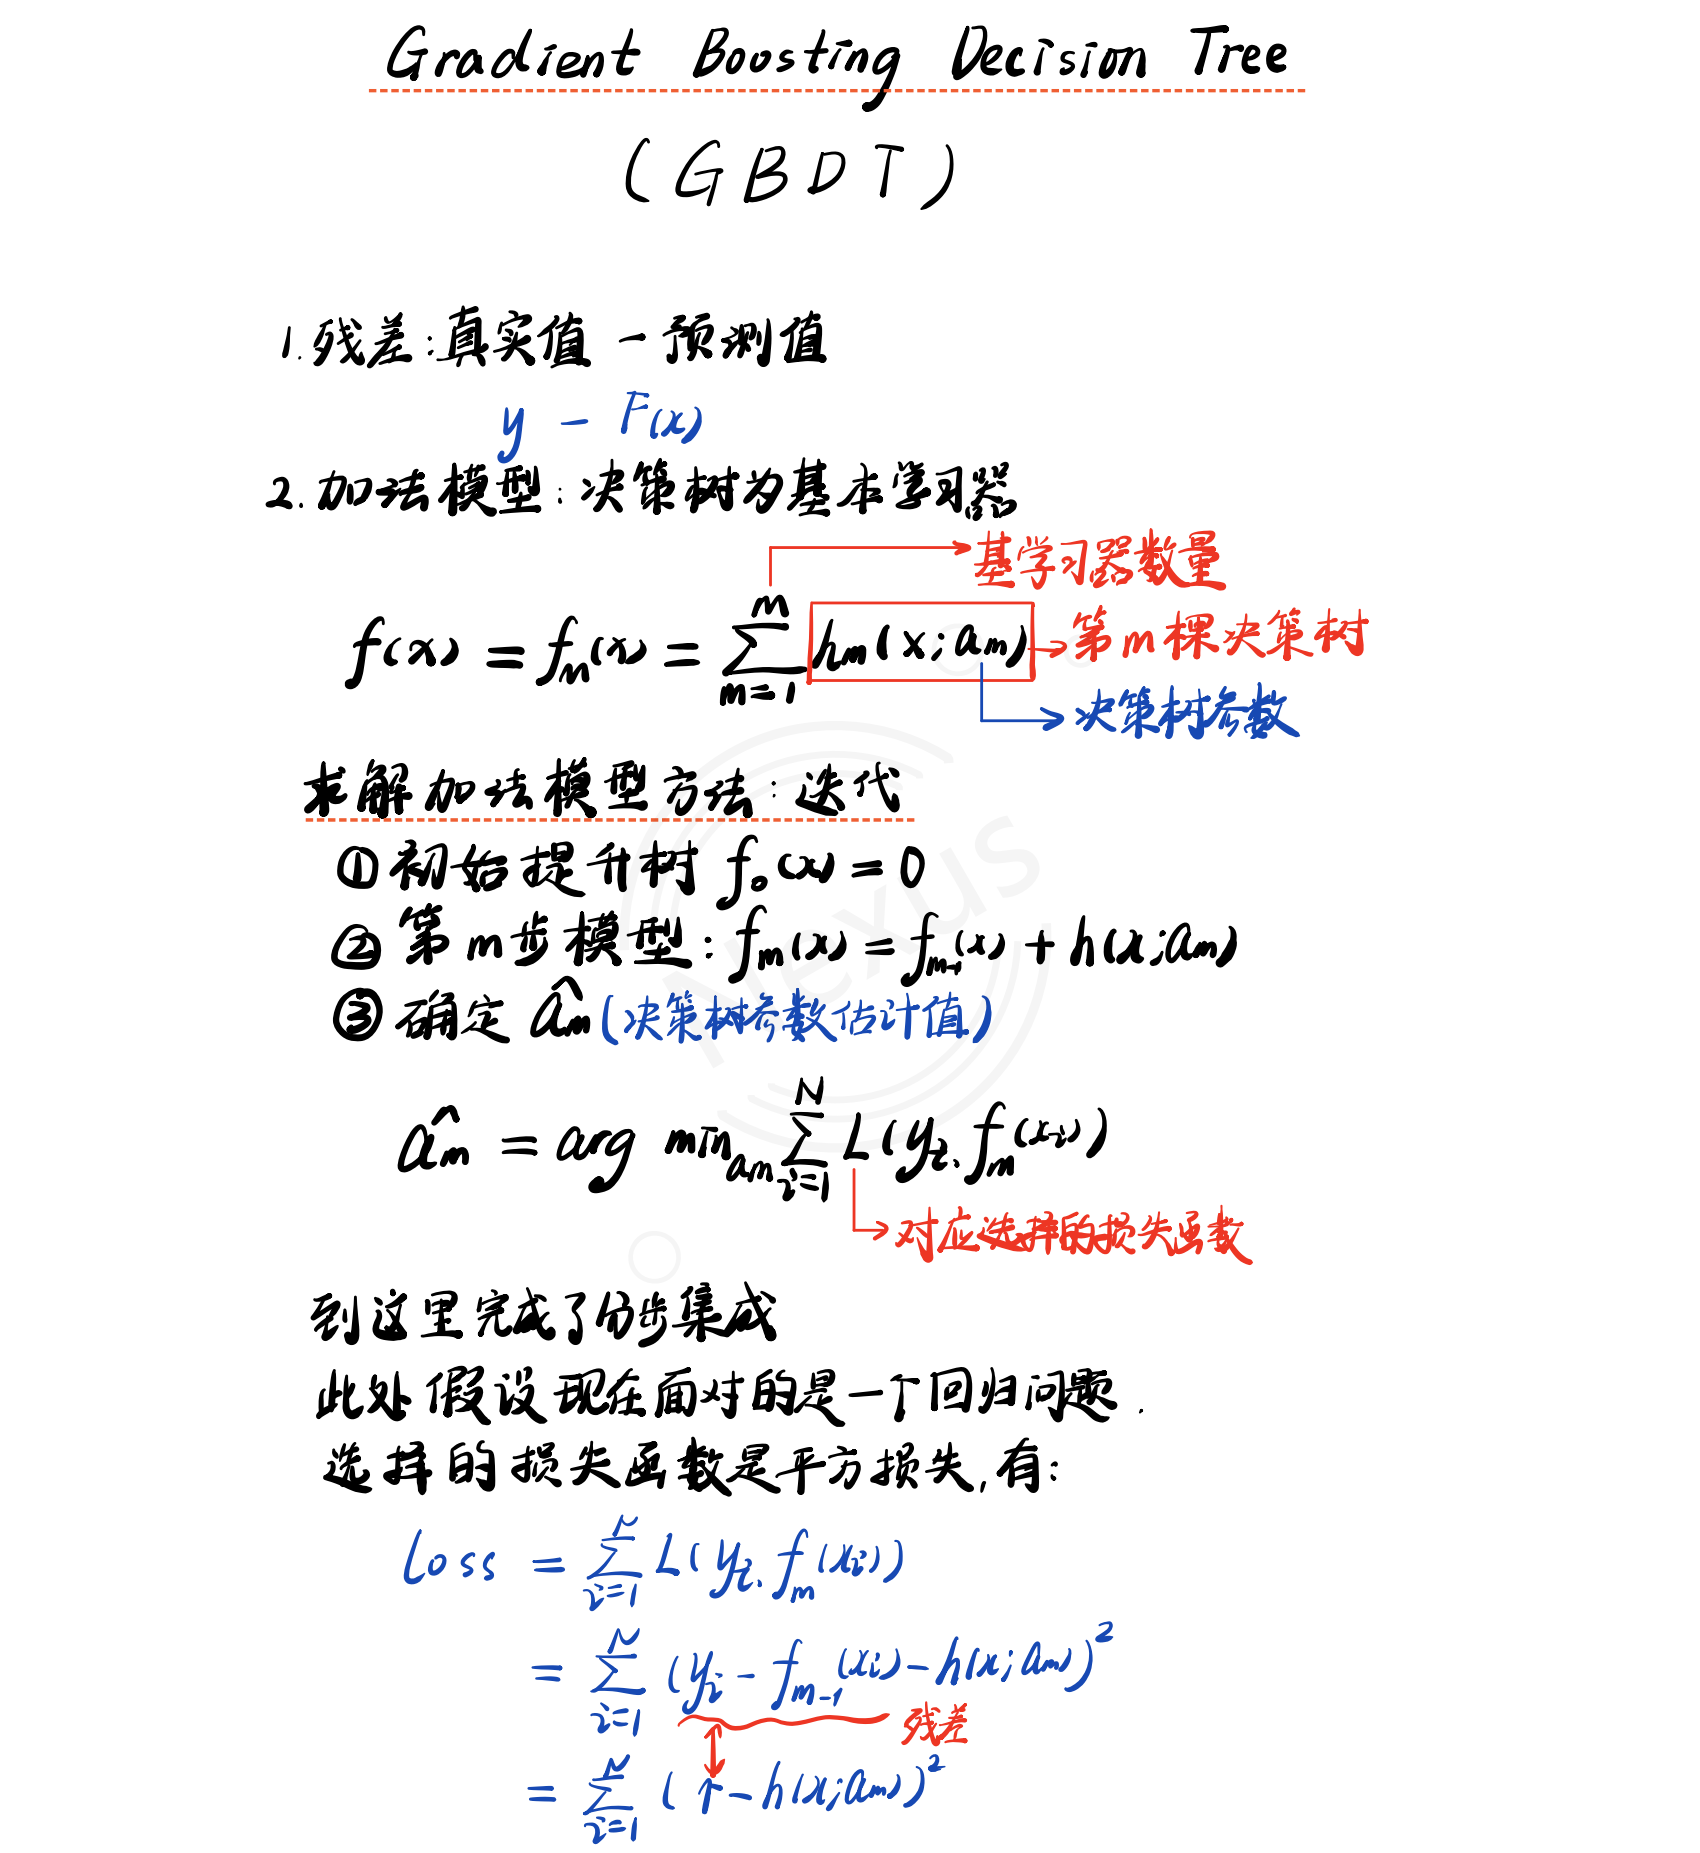 Gradient Boosting Decision Tree
(GBDT)
1.残差:真实值 - 预测值
y - F(x)
2.加法模型:决策树为基本学习器
基学习器数量
f(x) = f_m(x) = ∑_{m=1}^{m} h_m(x;a_m)
第m棵决策树
决策树参数
求解加法模型方法:迭代
①初始提升树 f_0(x) = 0
②第m步模型: f_m(x) = f_{m-1}(x) + h(x;a_m)
③确定 â_m (决策树参数估计值)
â_m = arg min_{a_m} ∑_{i=1}^{N} L(y_i, f_m(x_i))
对应选择的损失函数
到这里完成了分步集成
此处假设现在面对的是一个回归问题.
选择的损失函数是平方损失,有:
Loss = ∑_{i=1}^{N} L(y_i, f_m(x_i))
= ∑_{i=1}^{N} (y_i - f_{m-1}(x_i) - h(x;a_m))^2
残差
= ∑_{i=1}^{N} (r - h(x;a_m))^2
Nexus